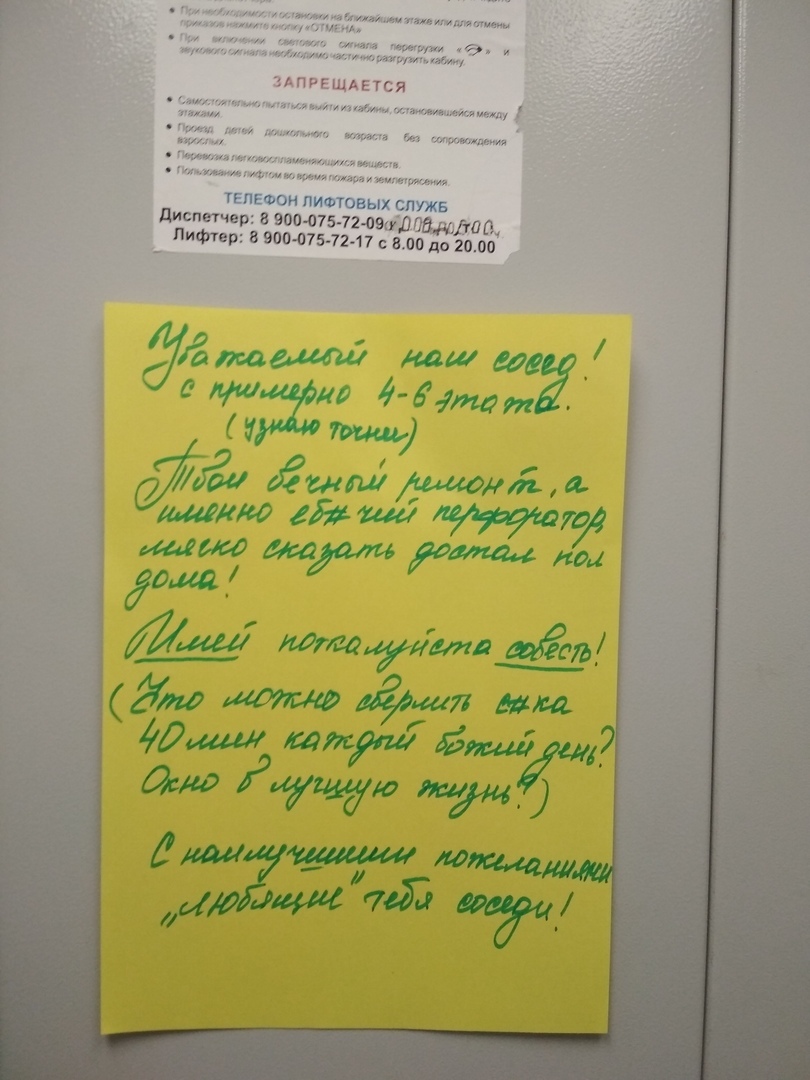 При необходимости остановки на ближайшем этаже или для отмены
приказов нажмите кнопку «ОТМЕНА»
При включении светового сигнала перегрузки « » и
звукового сигнала необходимо частично разгрузить кабину.
ЗАПРЕЩАЕТСЯ
Самостоятельно пытаться выйти из кабины, остановившейся между
этажами.
Проезд детей дошкольного возраста без сопровождения
взрослых.
Перевозка легковоспламеняющихся веществ.
Пользование лифтом во время пожара и землетрясения.
ТЕЛЕФОН ЛИФТОВЫХ СЛУЖБ
Диспетчер: 8 900-075-72-09
Лифтер: 8 900-075-72-17 с 8.00 до 20.00
Уважаемый наш сосед!
с примерно 4-6 этажа.
(узнаю точнее)
Твой вечный ремонт, а
именно еб#чий перфоратор,
мягко сказать достал пол
дома!
Имей пожалуйста совесть!
(Что можно сверлить с#ка
40 мин каждый божий день?
Окно в лучшую жизнь?)
С наилучшими пожеланиями
„любящие" тебя соседи!